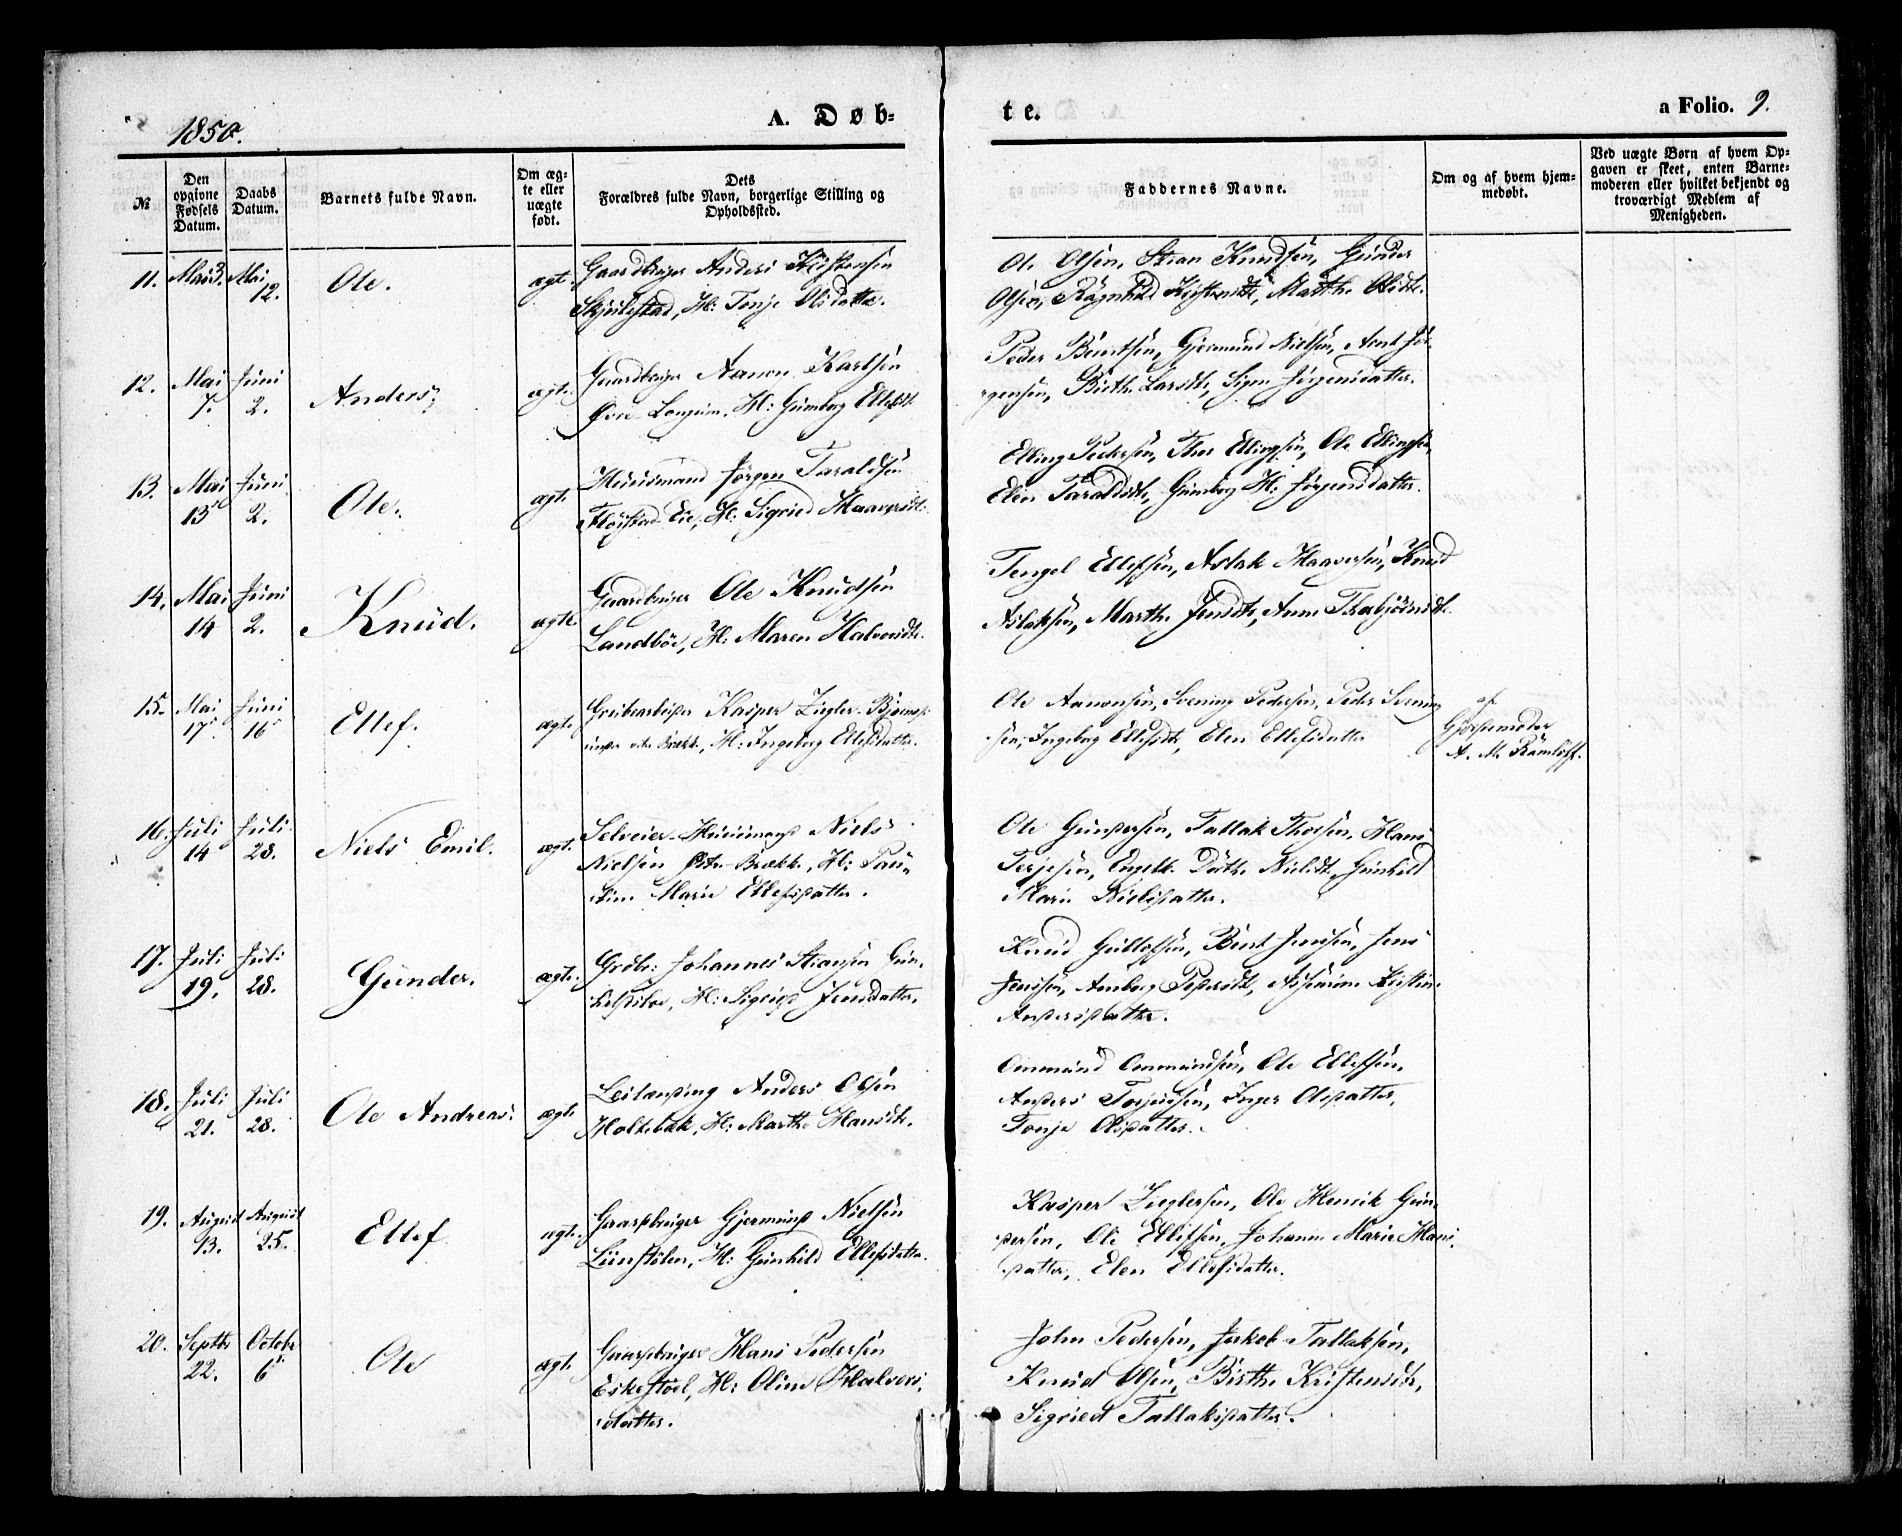 1850.
A. Døb-
te.
a Folio. 9.
№
Den opgivne Fødsels Datum.
Daabs Datum.
Barnets fulde Navn.
Om ægte eller uægte født.
Dets Forældres fulde Navn, borgerlige Stilling og Opholdssted.
Faddernes Navne.
Om og af hvem hjemmedøbt.
Ved uægte Børn af hvem Opgaven er skeet, enten Barnemoderen eller hvilket bekjendt og troværdigt Medlem af Menigheden.
11. Mai 3. Mai 12. Ole. ægte.
Gaardbruger Anders
Skjulestad, H: Tonje Olsdatter.
Ole Olsen, Stian Knudsen, Gunder
Olsen, Marthe Olsdtr.
12. Mai 7. Juni 2. Anders, ægte.
Gaardbruger Aanon Karlsen
Øvre Longum, H: Gunborg Ellefsdt.
Peder Berntsen, Gjermund Nielsen, Arnt Jør-
gensen, Birthe Larsdtr, Signe Jørgensdatter.
13. Mai 13 Juni 2. Ole. ægte
Huusmand Jørgen Taraldsen
Fløistad Eie, H: Sigried Haaversdt.
Elling Pedersen, Thor Ellingsen, Ole Ellingsen,
Elen Taraldsdtr, Gunborg H: Jørgensdatter.
14. Mai 14 Juni 2. Knud. ægte
Gaardbruger Ole Knudsen
Landbøe, H: Maren Halvorsdtr.
Tengel Ellefsen, Aslak Haaversen, Knud
Aslaksen, Marthe Jensdtr, Anne Thorbjørnsdtr.
15. Mai 17 Juni 16 Ellef. ægte.
Grubearbeider Kasper Ziegler
H: Ingeborg Ellefsdatter.
Ole Aanonsen, Svening Pedersen, Peder Svening-
sen, Ingeborg Ellefsdtr, Elen Ellefsdatter
af
Gjordemoder
A. M.
16. Juli 14 Juli 28. Niels Emil. ægt.
Selveier Huusmand Niels
Nielsen Brække, H: Pau-
line Marie Ellefsdatter.
Ole Gundersen, Tallak Thorsen, Hans
Terjesen, Dorth. Nielsdt. Gunhild
Marie Nielsdatter.
17. Juli 19. Juli 28. Gunder. ægte.
Grdbr: Johannes Stiansen
H: Sigrid Jensdatter.
Knud Gullefsen, Bent Jensen, Jens
Jenssen, Anborg Pedersdt,
Andersdatter.
18. Juli 21. Juli 28. Ole Andreas. ægte
Leilænding Anders Olsen
Holtebæk, H: Marthe Hansdtr.
Ommund Ommundsen, Ole Ellefsen,
Anders Torjussen, Inger Olsdatter,
Tonje Olsdatter.
19. August 13. August 25. Ellef ægte.
Gaardbruger Gjermund Nielsen
Lunstølen, H: Gunhild Ellefsdatter.
Kasper Zieglersen, Ole Henrik Gun-
dersen, Ole Ellefsen, Johanne Marie Hans-
datter, Elen Ellefsdatter.
20. Septbr 22. Octobr 6 Ole ægte
Gaardbruger Hans Pedersen
Eskestøel, H: Oline Halvors-
datter.
John Pedersen, Jakob Tallaksen,
Knud Olsen, Birthe Kristensdtr,
Sigried Tallaksdatter.